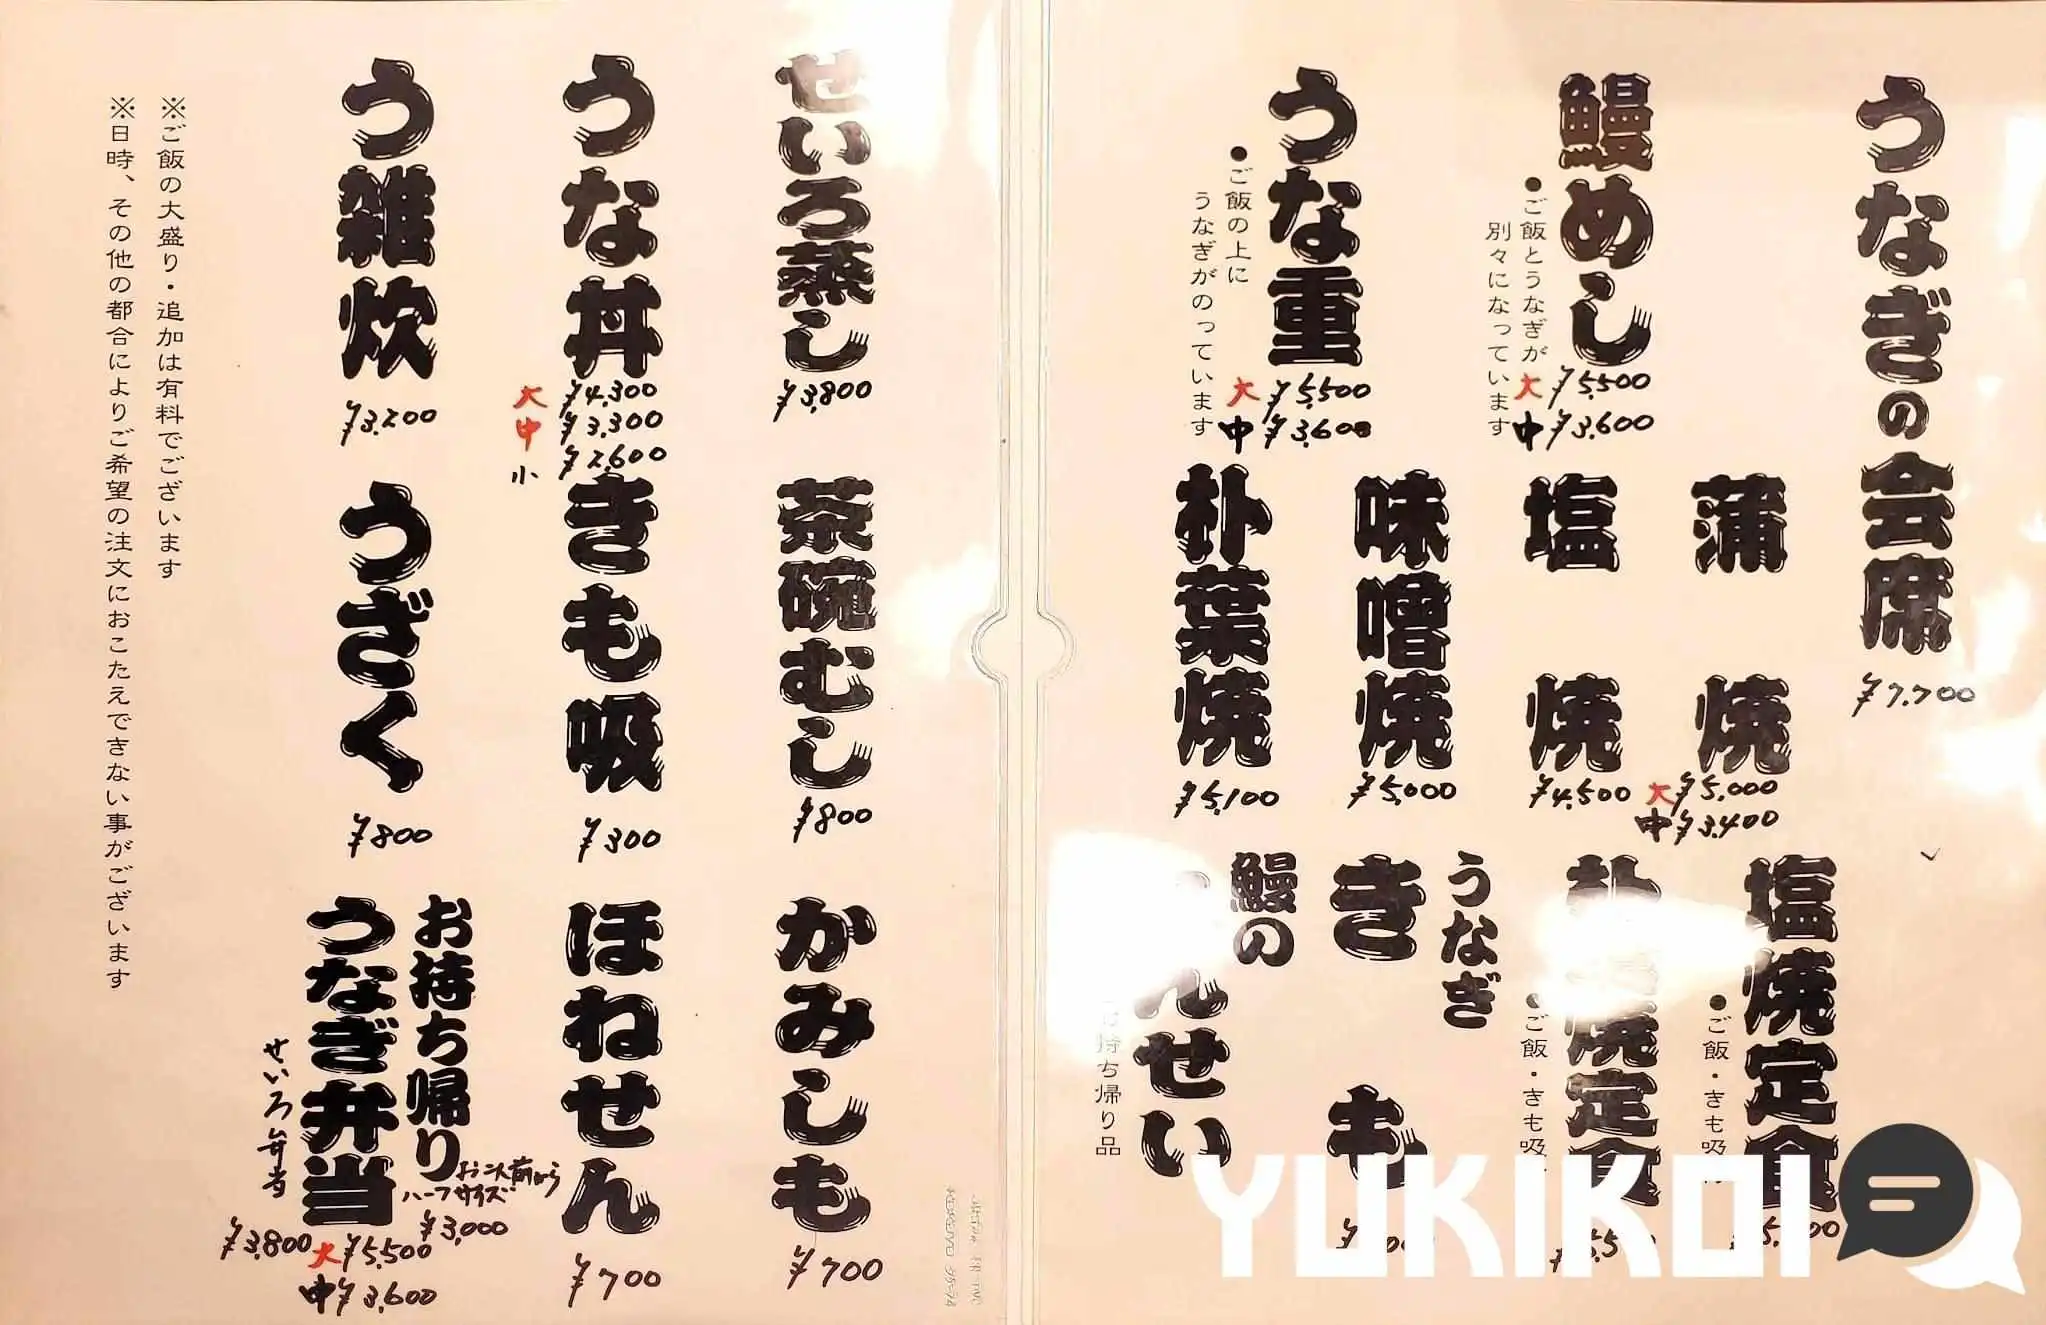 うなぎの会席
¥7,700
鰻めし
●ご飯とうなぎが
別々になっています
大 ¥5,500
中 ¥3,600
うな重
●ご飯の上に
うなぎがのっています
大 ¥5,500
中 ¥3,600
蒲焼
大 ¥5,000
中 ¥3,400
塩焼
¥4,500
味噌焼
¥5,000
朴葉焼
¥5,100
塩焼定食
●ご飯・きも吸
焼定食
●ご飯・きも吸
うなぎ
きも
鰻の
んせい
持ち帰り品
せいろ蒸し
¥3,800
茶碗むし
¥800
かみしも
¥700
うな丼
大 ¥4,300
中 ¥3,300
小 ¥2,600
きも吸
¥300
ほねせん
¥700
う雑炊
¥3,200
うざく
¥800
お持ち帰り
うなぎ弁当
お二人前から
ハーフサイズ
¥3,000
大 ¥5,500
中 ¥3,600
せいろ弁当
¥3,800
※ご飯の大盛り・追加は有料でございます
※日時、その他の都合によりご希望の注文におこたえできない事がございます
YUKIKOI